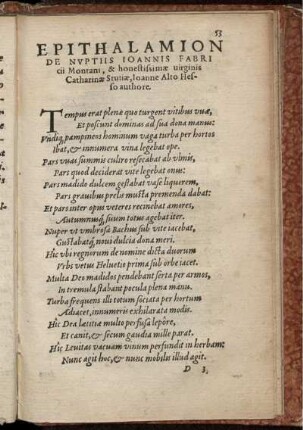 53
EPITHALAMION
DE NVPTIIS IOANNIS FABRI
cii Montani, & honestissimæ uirginis
Catharinæ Stutiæ, Ioanne Alto Hes-
so authore.
Tempus erat plenæ quo turgent vitibus vuæ,
Et poscunt dominas ad sua dona manus:
Vndiq; pampineos hominum vaga turba per hortos
Ibat, & innumera vina legebat ope.
Pars vuas summis cultro resecabat ab vimis,
Pars quod deciderat vite legebat onus:
Pars madido dulcem gestabat vase liquorem,
Pars grauibus prelis musta premenda dabat:
Et pars inter opus veteres recinebat amores,
Autumnusq; suum totus agebat iter.
Nuper vt vmbrosa Bachus sub vite iacebat,
Gustabatq; nous dulcia dona meri.
Hic vbi regnorum de nomine dicta duorum
Vrbs vetus Heluetio prima sub orbe iacet.
Multa Deo madidos pendebant serta per armos,
In tremula stabant pocula plena manu.
Turba frequens illi totum sociata per hortum
Adiacet, innumeris exhilarata modis.
Hic Dea lætitia multo perfusa lepôre,
Et canit, & secum gaudia mille parat.
Hic Leuitas vacuam vinum perfundit in herbam:
Nunc agit hoc, & nunc mobilis illud agit.
D 3